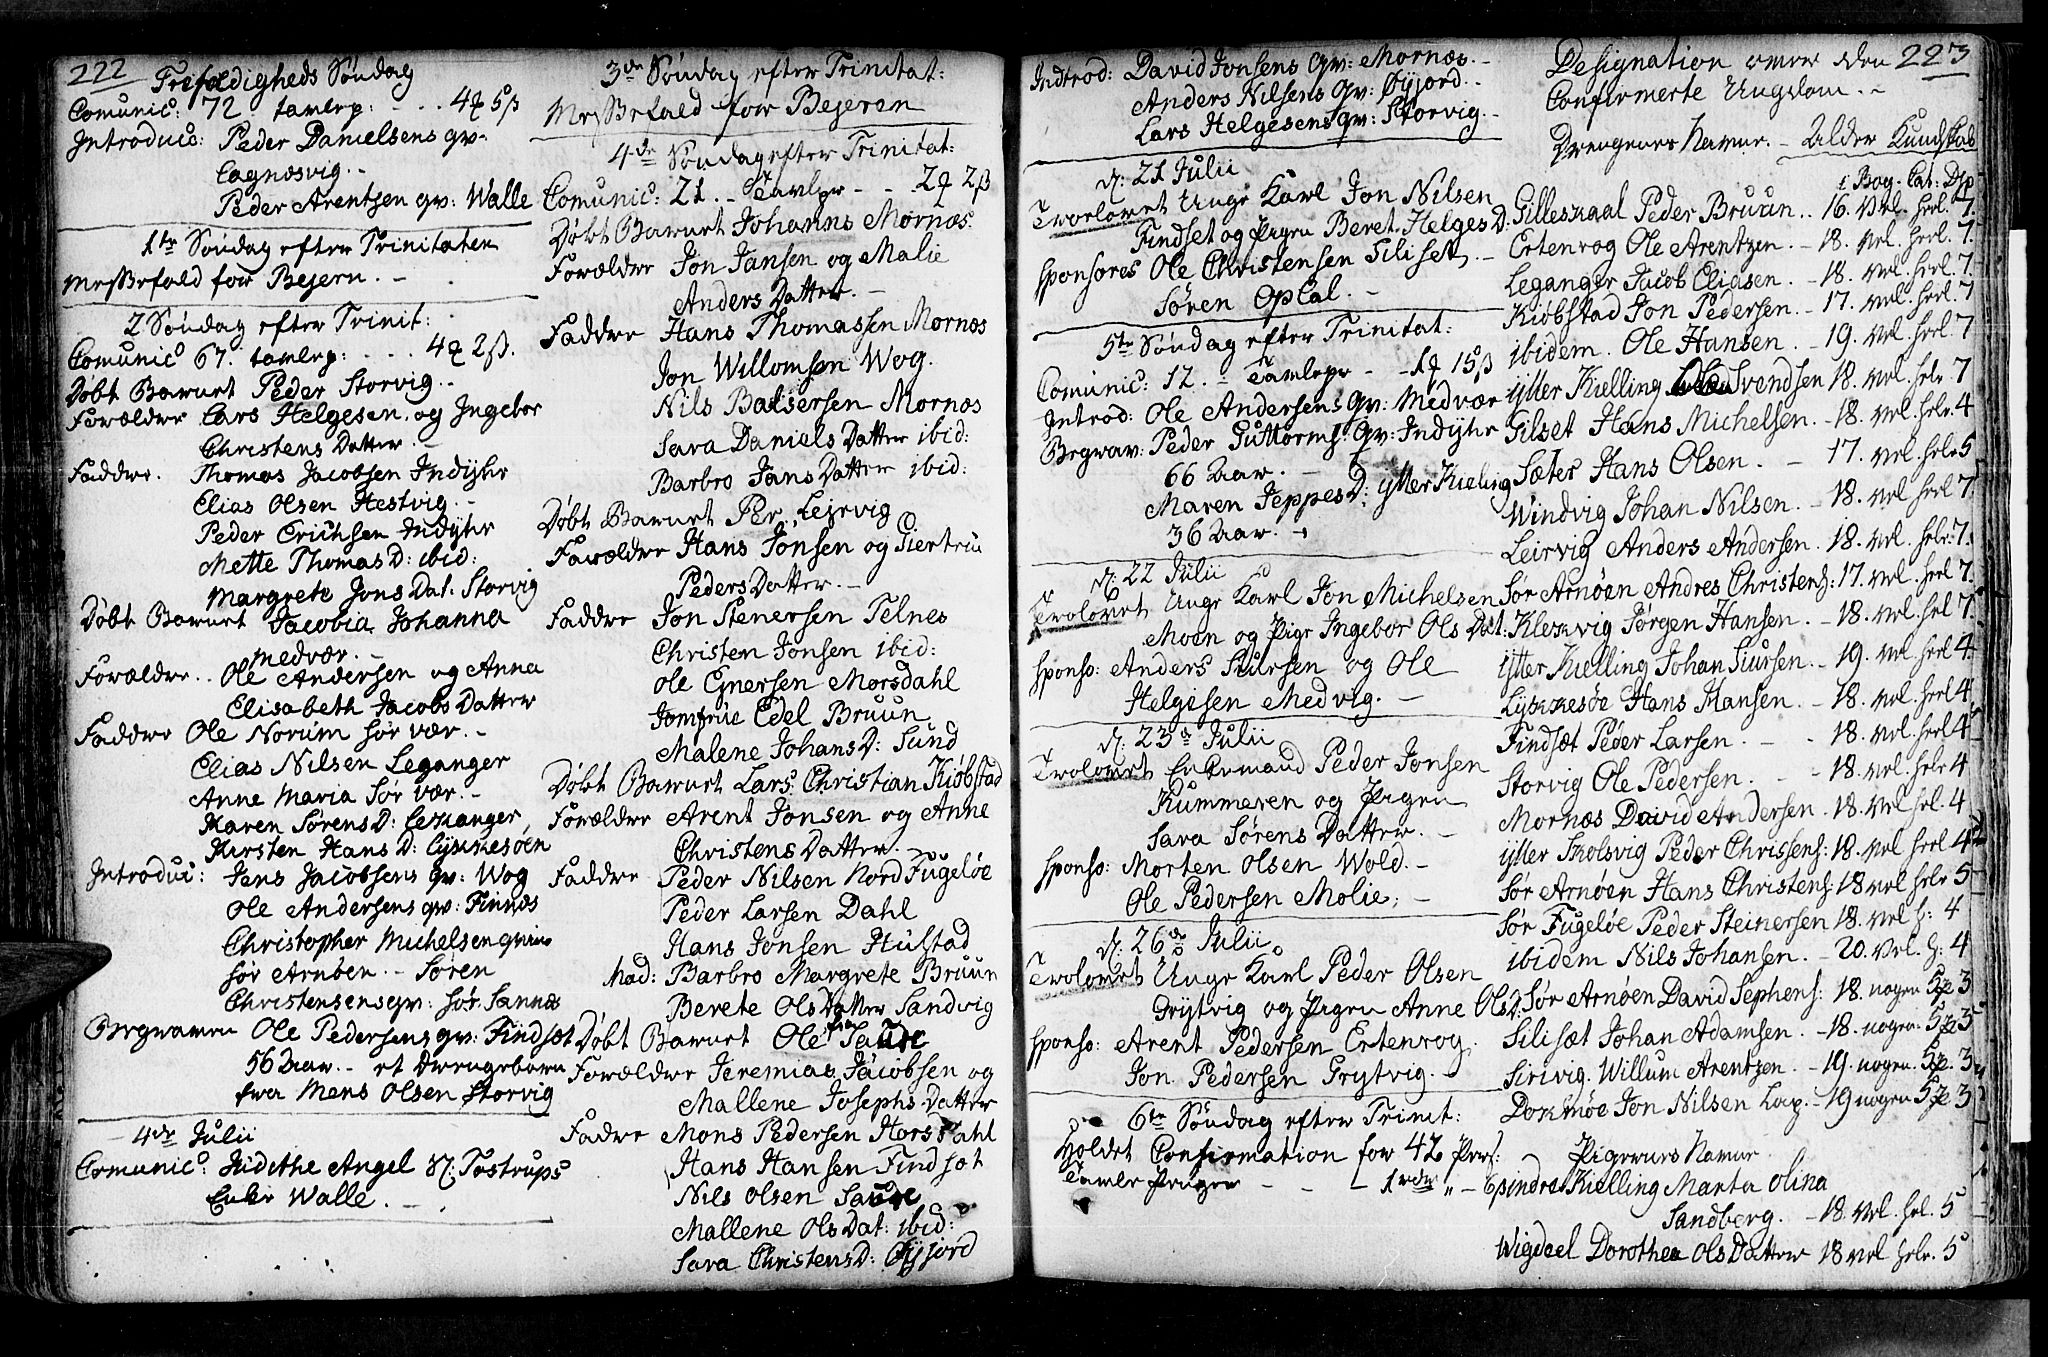 222
Trefoldigheds Søndag
Comunic: 72 tavlep: - . . 4 5ß
Introduc: Peder Danielsens qv:
Lagnæsvig. -
Peder Arentsen qv: Walle
1te Søndag efter Trinitaten
Messefald for Bejern. -
2 Søndag efter Trinit:
Comunic 67. tavlep: . . . . 4 2ß.
Døbt Barnet Peder Storvig. -
Forældre Lars Helgesen og Ingebor
Christens Datter. -
Faddre. Thomas Jacobsen Indijhr
Elias Olsen Hestvig. -
Peder Erichsen Indijhr
Mette Thomas D: ibid:
Margrete Jons Dat. Storvig
Døbt Barnet Jacobia Johanna
Medvær. -
Forældre. . Ole Andersen og Anna
Elisabeth Jacobs Datter
Faddre Ole Norum sør vær. -
Elias Nilsen Leganger
Anne Maria Sør vær. -
Karen Sørens D: Lekanger
Kirsten Hans D: Lykkesøen
Introduc: Jens Jacobsens qv: Wog
Ole Andersens qv: Finnæs
Christopher Michelsen qvin
sør Arnøen. - Søren
Christensens qv: sør Sannæs
Begraven Ole Pedersens qv: Findsæt
56 Aar. - et Drengebarn
fra Mens Olsen Storvig
4de Julii
Comunic: Judithe Angel Sl: Tostrups
Enke Walle. -
3de Søndag efter Trinitat:
Messefald for Bejeren
4de Søndag efter Trinitat:
Comunic: 21. - Tavlep - - 2 2ß
Døbt Barnet Johanns Mornæs.
Forældre Jon Jansen og Malie
Anders Datter. -
Faddre Hans Thomassen Mornæs
Jon Willomsen Wog.
Nils Baltsersen Mornæs
Sara Daniels Datter ibid:
Barbro Jans Datter ibid:
Døbt Barnet Per Leirvig
Forældre Hans Jonsen og Giertru
Peders Datter. -
Faddre Jon Stenersen Telnes
Christen Jonsen ibid:
Ole Ejnersen Morsdahl
Jomfrue Edel Bruun
Malene Johans D: Sund
Døbt Barnet Lars Christian Kiøbstad
Forældre Arent Jonsen og Anne
Christens Datter. -
Faddre Peder Nilsen Nord Fugeløe
Peder Larsen Dahl
Hans Jonsen Hustad
Mad: Barbro Margrete Bruun
Berete Ols Datter Sandvig
Døbt Barnet Ole Saude
Forældre Jeremias Jacobsen og
Mallene Josephs Datter
Fadre Mons Pedersen Horsdahl
Hans Hansen Findsæt
Nils Olsen Saude
Mallene Ols Dat: ibid:
Sara Christens D: Øyjord
Indtrod: David Jonsens qv: Mornæs. -
Anders Nilsens qv: Øyjord. -
Lars Helgesens qv: Storvig. -
d: 21 Julii
Trolovet Unge Karl Jon Nilsen
Findset og Pigen Beret Helges D:
Sponsores Ole Christensen Silisetz. -
Søren Opsal. -
5te Søndag efter Trinitat:
Comunic: 12. - Tavlep - - 1 15ß
Introd: Ole Andersens qv: Medvær
Begrav: Peder Guttorms qv: Indijhr
66 Aar. -
Maren Jeppes D: ytter Kieling
36 Aar. -
d: 22 Julii
Trolovet Unge Karl Jon Michelsen
Moen og Pige Ingebor Ols Dat:
Sponso: Anders Siursen og Ole
Helgesen Medvig. -
d: 23de Julii
Trolovet Enkemand Peder Jonsen
Kummeren og Pigen
Sara Sørens Datter. -
Sponso: Morten Olsen Wold. -
Ole Pedersen Molie, -
d: 26de Julii
Trolovet Unge Karl Peder Olsen
Grytvig og Pigen Anne Ols D:
Sponso: Arent Pedersen Ertenvog.
Jon Pedersen Grytvig. -
6te Søndag efter Trinit:
Holdet Confirmation for 42 Pers:
Tavle Penger - - - 1 rdr " - 6
Designation over den 223
Confirmerte Ungdom. -
Drengenes Navne. - Alder Kundskab
i Bog. Cat: Dsp
Gilleskaal Peder Bruun. . 16. Vel. heel. 7.
Ertenvog Ole Arentzen. - 18. vel. heel. 7.
Leganger Jacob Eliasen. - 18. vel. heel. 7.
Kiøbstad Jon Pedersen. - 17. vel. heel. 7
ibidem. Ole Hansen. - 19. vel. heel 7
ytter Kielling Svendsen 18. vel. hele 7
Gilset Hans Michelsen. - 18. vel. hele. 4
Sæter Hans Olsen. - 17. vel. hele 5
Windvig Johan Nilsen. - 18. vel heel 7
Leirvig Anders Andersen. 18. vel. hele. 7.
Sør Arnøen Andres Christens: 17. vel. heel 7
Klekvig Jørgen Hansen. - 18. vel. hel 7
ytter Kielling Johan Siursen. - 19. vel. heel 4.
Lykkesøe Hans Hansen. - 18. vel. heel 4.
Findsæt Peder Larsen. - - . 18. vel. heel 4
Storvig Ole Pedersen. - - 18. vel. hele 4
Mornæs David Andersen. 18. vel hel. 4
ytter Skolsvig Peder Chrissens: 18. vel heel 4
Sør Arnøen Hans Christens: 18 vel hele 5
Sør Fugeløe Peder Steinersen 18. vel h: 4
ibidem Nils Johansen. - 20. vel. h: 4
Sør Arnøen David Sephens: 18. nogen 3
Silisæt Johan Adamsen. - 18. nogen 3
Sirivig. Willum Arentzen. - 19. nogen. 3
Dokmøe Jon Nilsen Lap. - 19 nogen 3
Pigernes Navne
indre Kielling Marta Olina
Sandberg. - 18. vel. hel. 5
Wigdeel Dorothea Ols Datter 18 vel hele. 5